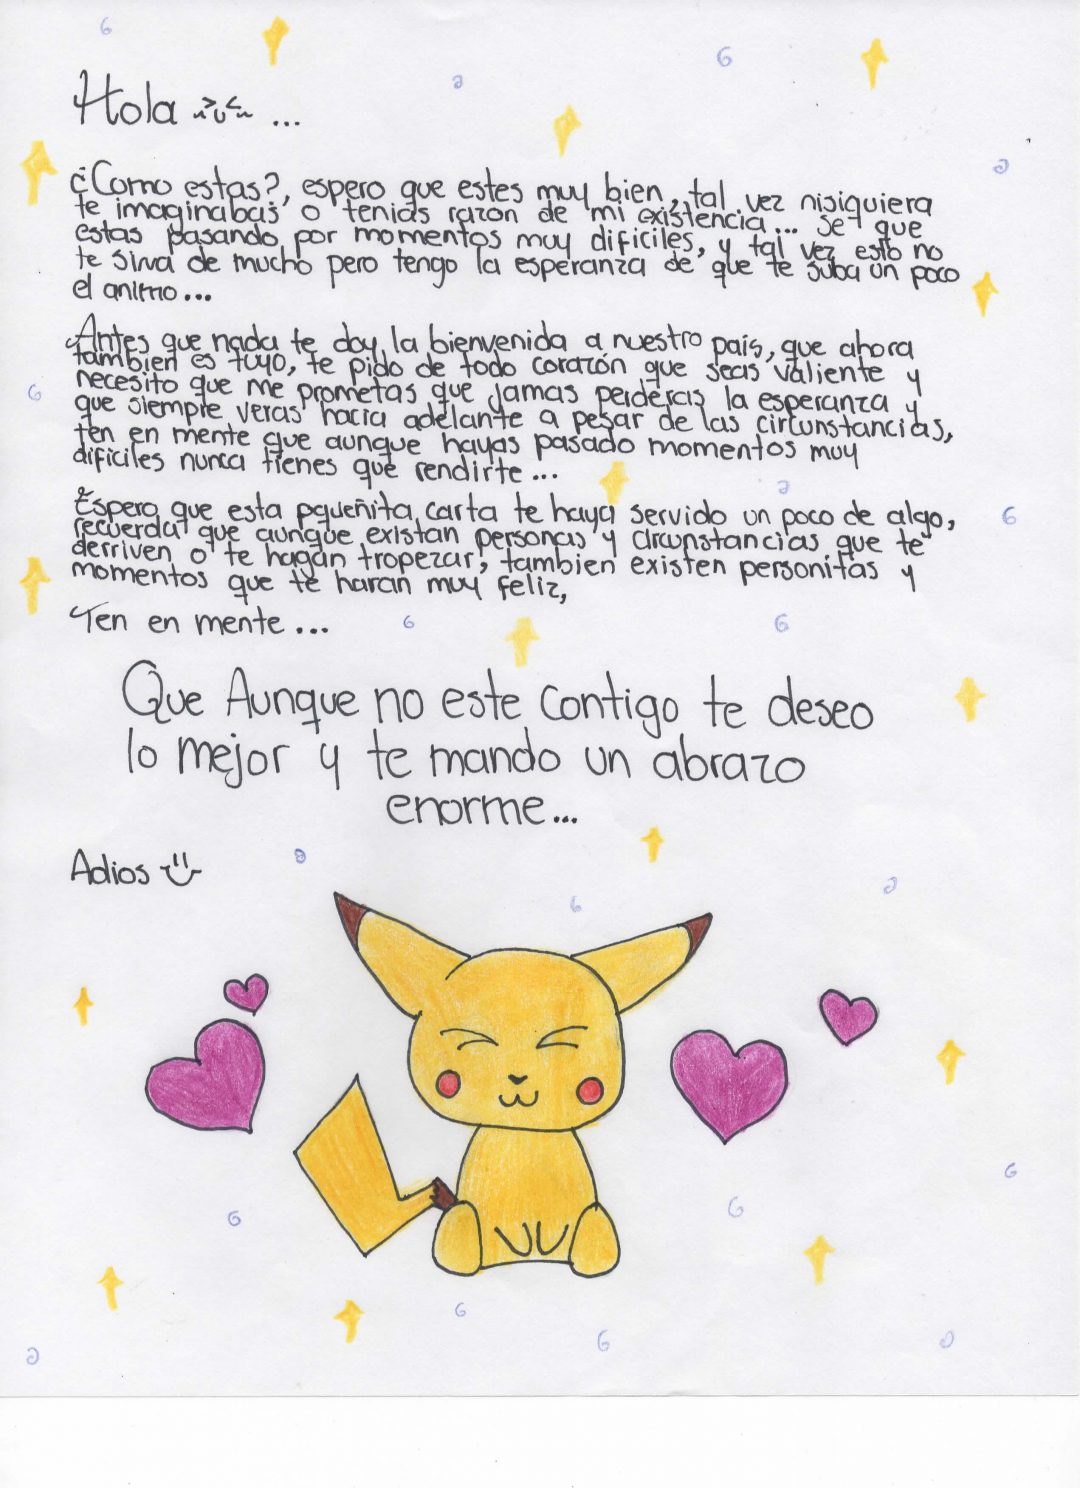 Hola >u< ...
¿Como estas?, espero que estes muy bien, tal vez nisiquiera
te imaginabas o tenias razon de mi existencia... se que
estas pasando por momentos muy dificiles, y tal vez esto no
te sirva de mucho pero tengo la esperanza de que te suba un poco
el animo...
Antes que nada te doy la bienvenida a nuestro país, que ahora
tambien es tuyo, te pido de todo corazón que seas valiente y
necesito que me prometas que jamas perderas la esperanza y
que siempre veras hacia adelante a pesar de las circunstancias,
ten en mente que aunque hayas pasado momentos muy
dificiles nunca tienes que rendirte...
Espero que esta pqueñita carta te haya servido un poco de algo,
recuerda que aunque existan personas y circunstancias que te
derriven o te hagan tropezar, tambien existen personitas y
momentos que te haran muy feliz,
Ten en mente...
Que Aunque no este contigo te deseo
lo mejor y te mando un abrazo
enorme...
Adios